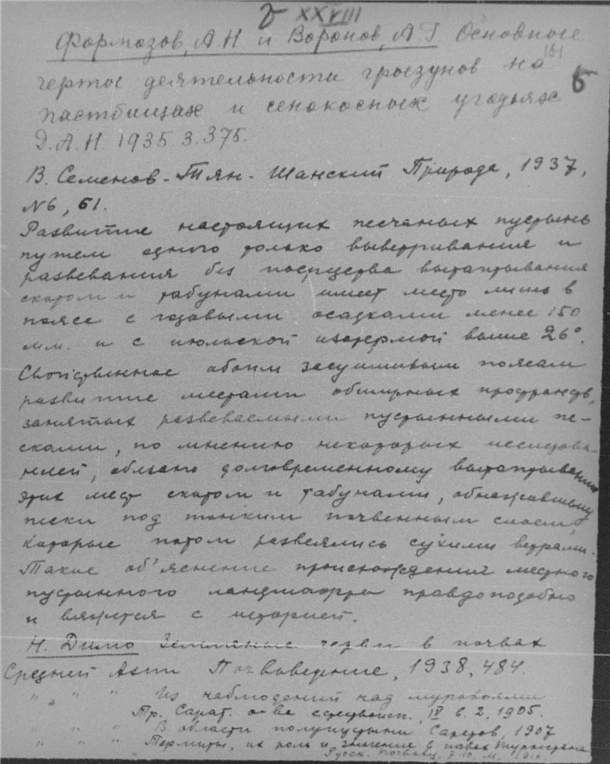 XXVIII
Формозов, А.Н и Воронов, А.Г Основные
черты деятельности грызунов на
пастбищах и сенокосных угодьях
Д.А.Н. 1935. 3. 375.
В. Семенов-Тян-Шанский Природа, 1937,
№6, 61.
Развитие настоящих песчаных пустынь
путем одного только выветривания и
развевания без посредства вытаптывания
скотом и табунами имеет место лишь в
поясе с годовыми осадками менее 150
мм. и с июльской изотермой выше 26°.
Свойственное обоим засушливым поясам
развитие местами обширных пространств,
занятых развеваемыми пустынными пе-
сками, по мнению некоторых исследова
телей, обязано долговременному вытаптыванию
этих мест скотом и табунами, обнажавшему
пески под тонким почвенным слоем,
которые потом развеялись сухими ветрами.
Такое об'яснение происхождения местного
пустынного ландшафта правдоподобно
и вяжется с историей.
Н. Димо Земляные черви в почвах
Средней Азии Почвоведение, 1938, 484.
" " " Из наблюдений над муравьями
Тр. Сарат. о-ва естествоисп., IV в. 2, 1905.
" " " В области полупустыни Саратов, 1907
" " " Термиты, их роль и значение в почвах Туркестана
Русск. Почвовед,